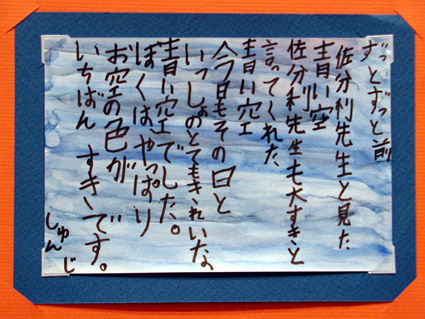 ずっとずっと前
佐分利先生と見た
青い空
佐分利先生も大すきと
言ってくれた
青い空
今日もその日と
いっしょのとてもきれいな
青い空でした。
ぼくはやっぱり
お空の色が
いちばん すきです。
しゅんじ